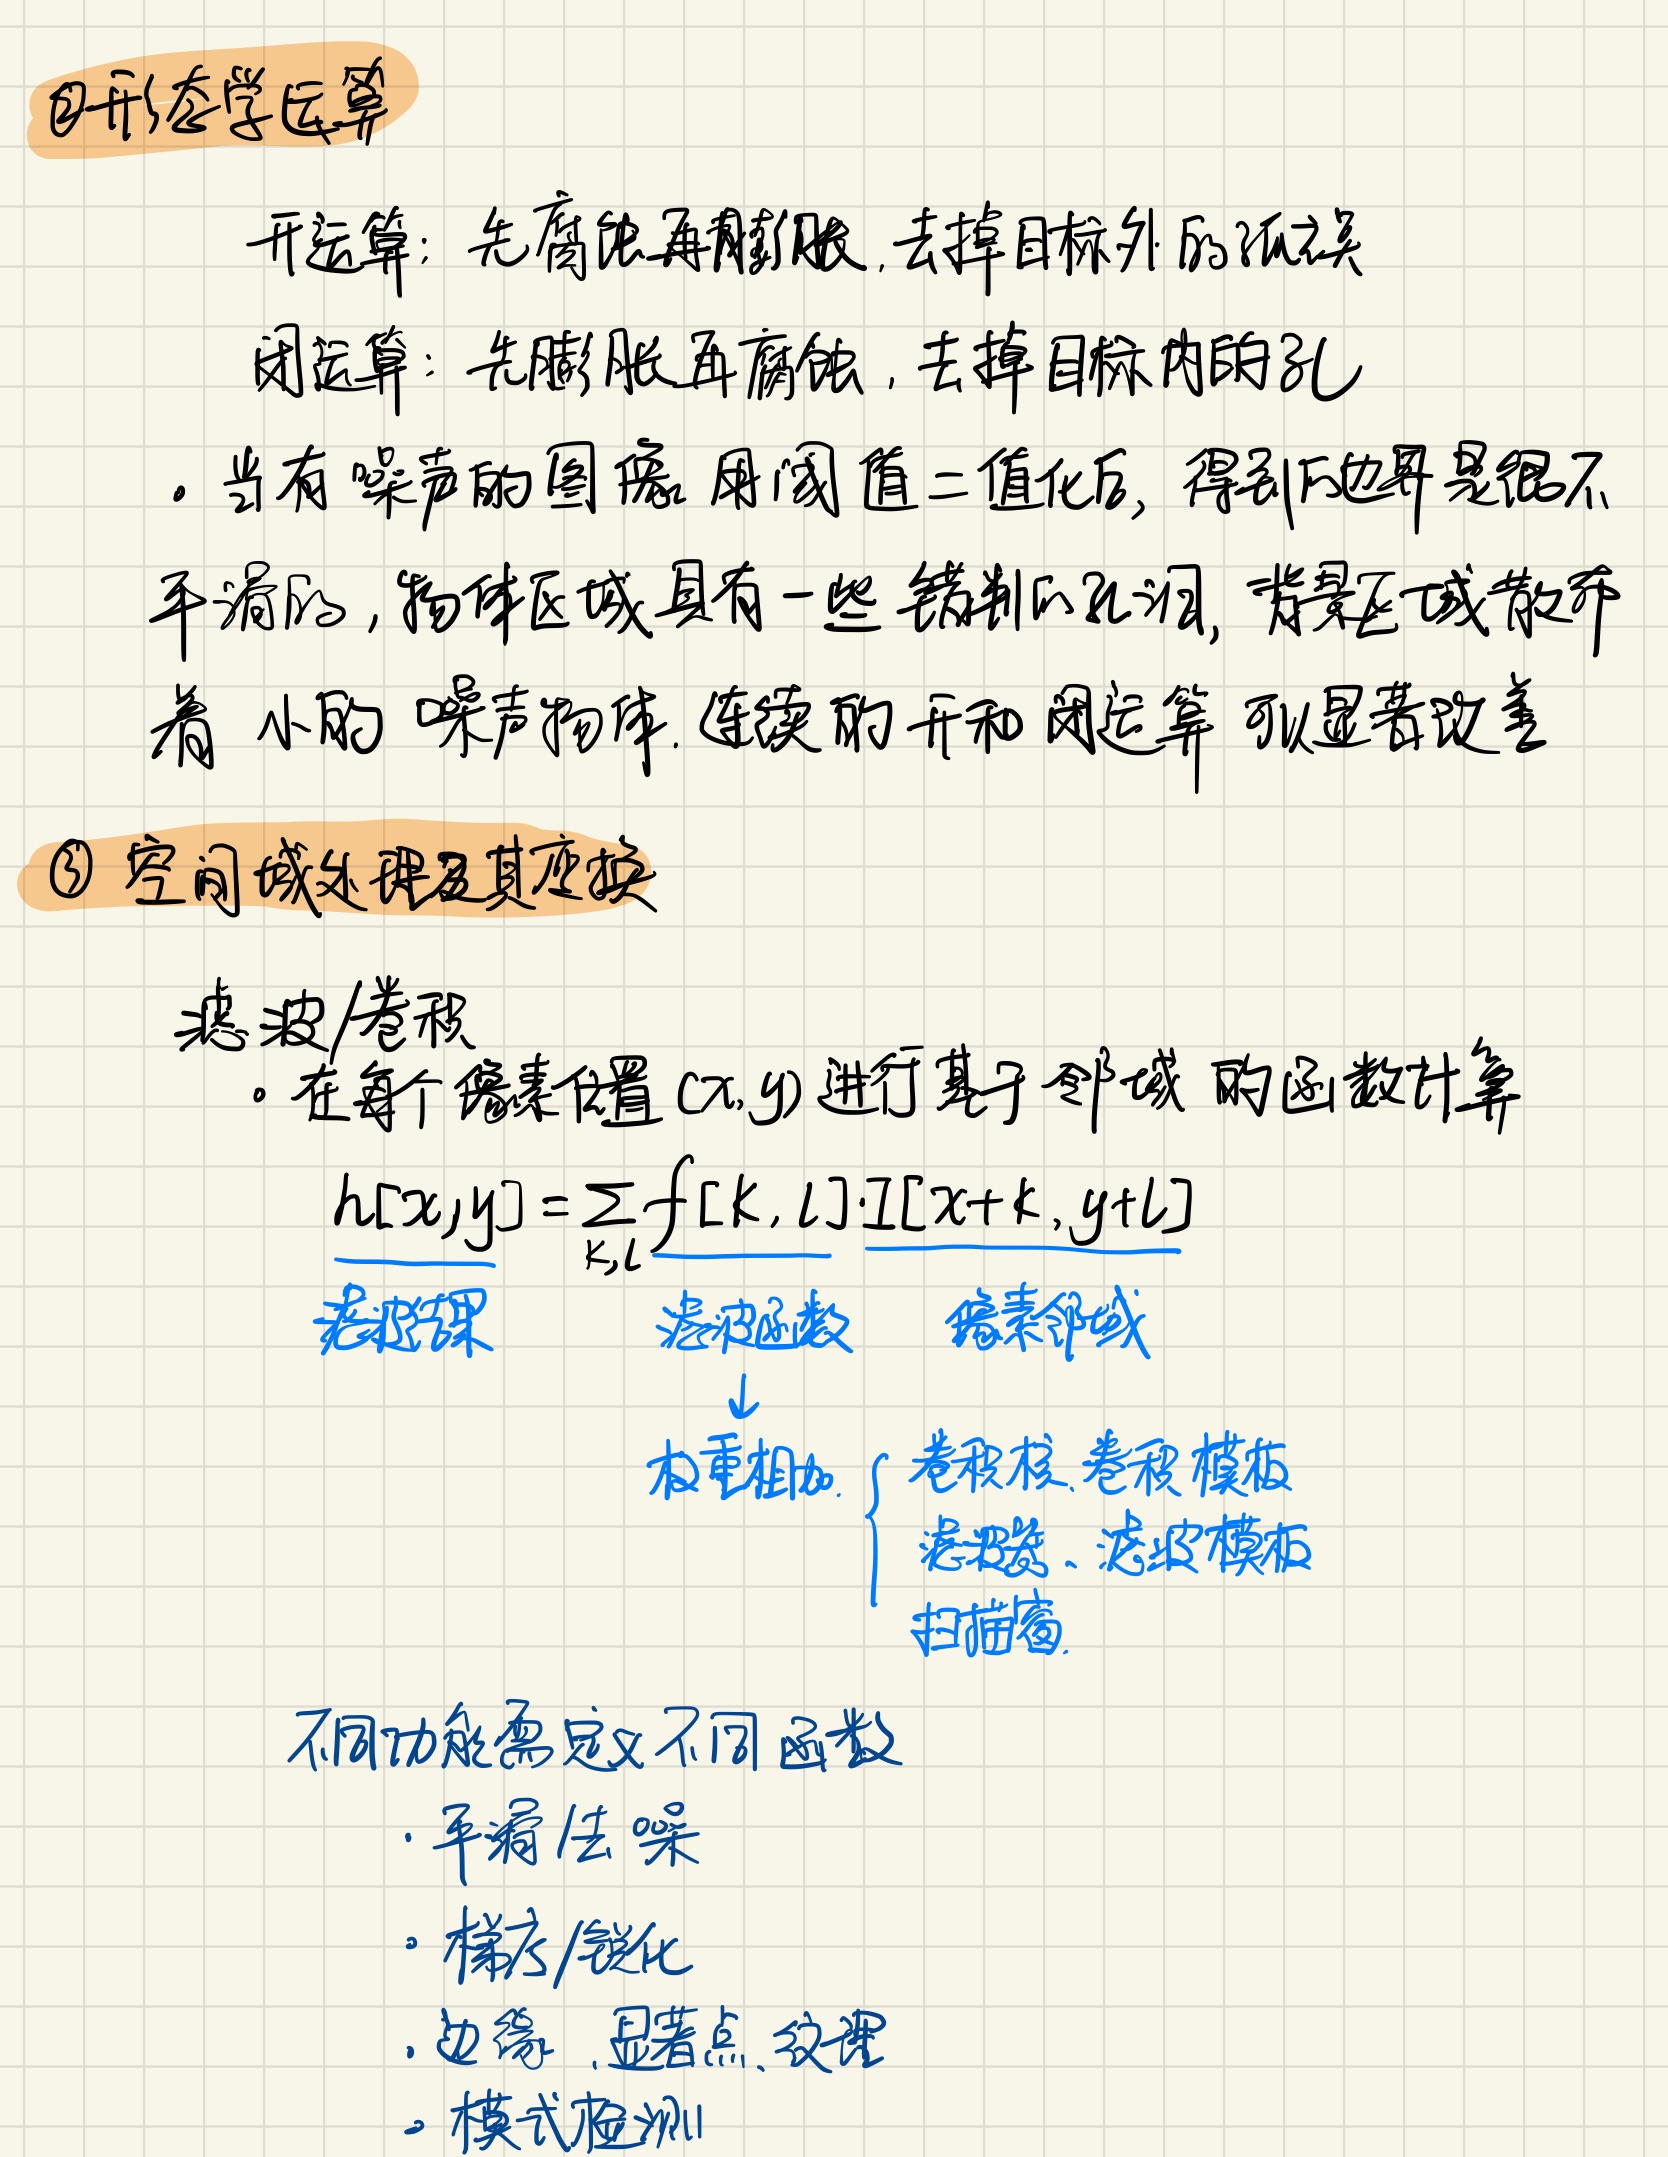 ②形态学运算
开运算：先腐蚀再膨胀，去掉目标外的孤立误
闭运算：先膨胀再腐蚀，去掉目标内的孔
·当有噪声的图像用阈值二值化后，得到的边界是很不
平滑的，物体区域具有一些错判的孔洞，背景区域散布
着小的噪声物体．连续的开和闭运算可以显著改善
③空间域处理及其变换
滤波/卷积
·在每个像素位置(x,y)进行基于邻域的函数计算
h[x,y]=∑f[k,l]·I[x+k,y+l]
k,l
滤波结果 滤波函数 像素邻域
↓
权重相加．{卷积核、卷积模板
滤波器、滤波模板
扫描窗．
不同功能需定义不同函数
·平滑/去噪
·梯度/锐化
·边缘、显著点、纹理
·模式检测